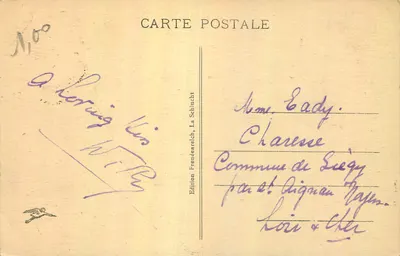 CARTE POSTALE
1,00
A loving kiss
Edition Freudenreich, La Schlucht
Mme. Eady.
Charesse
Commune de Siègy
par St. Aignan Noyers
Loir & Cher